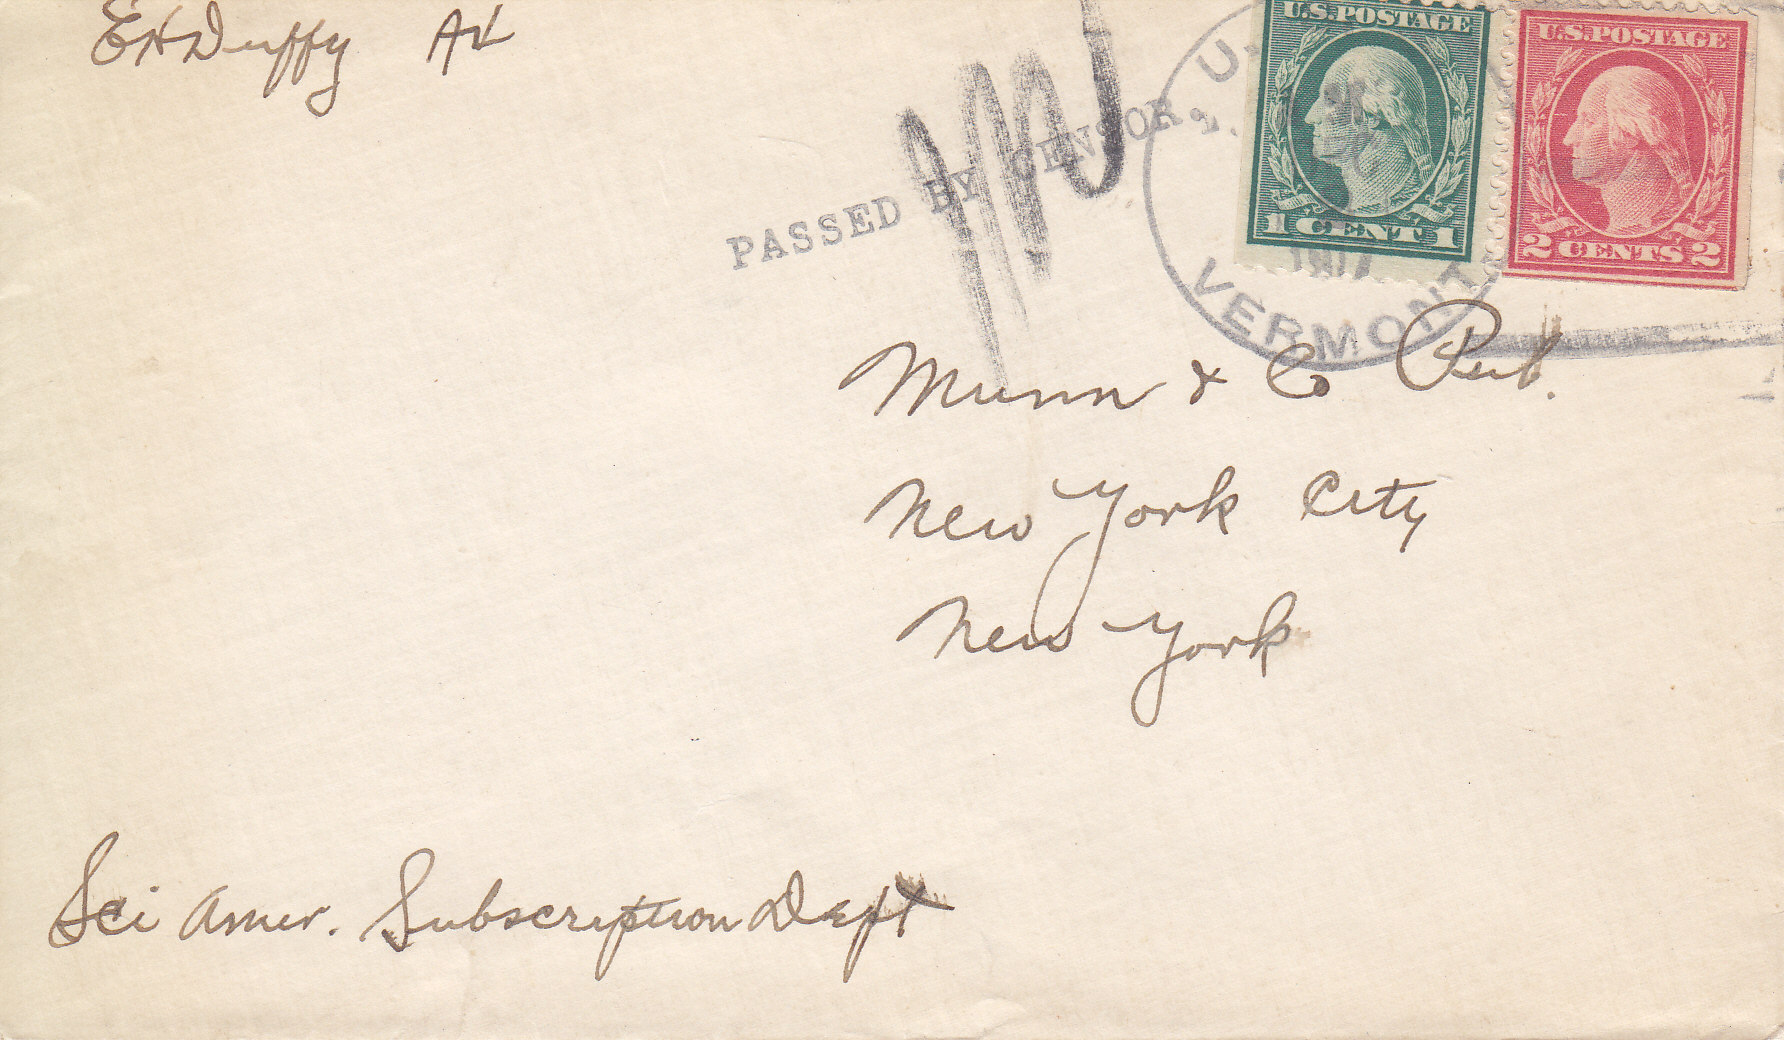 EH Duffy
U.S.
U.S. POSTAGE
1 CENT 1
U.S. POSTAGE
2 CENTS 2
PASSED BY CENSOR.
VERMONT
Munn & Co Pub.
New York City
New York
Sci Amer. Subscription Dept